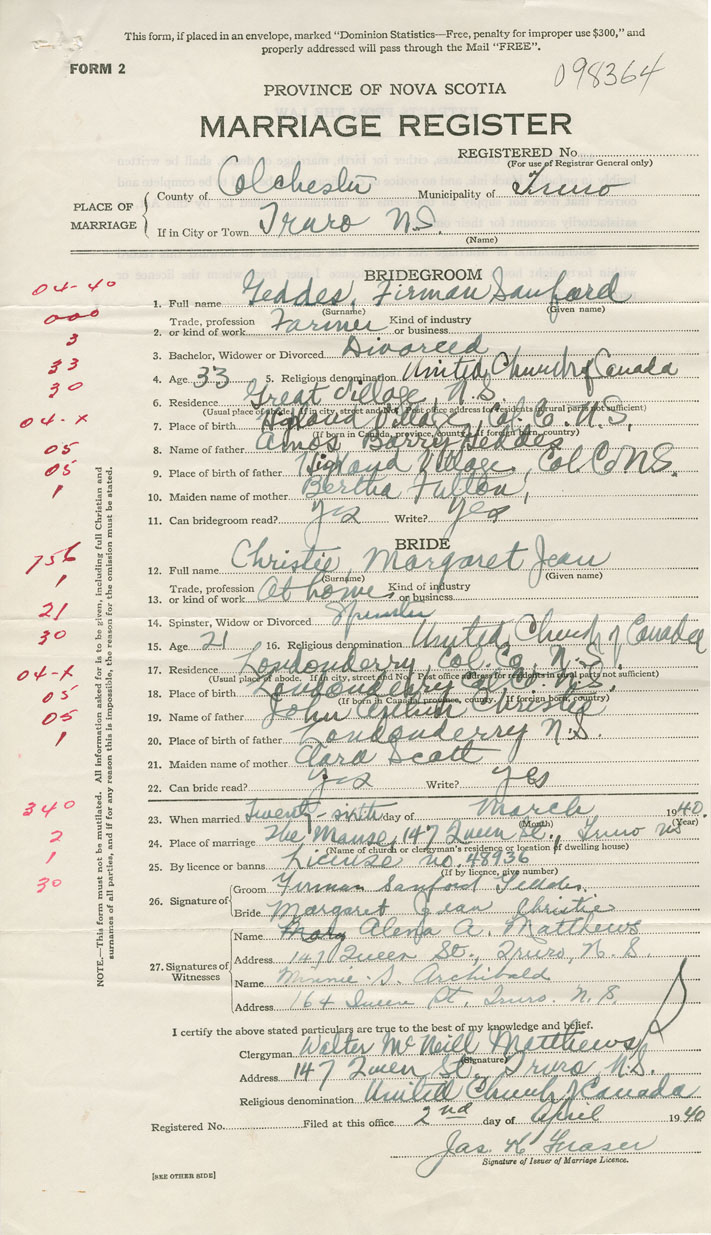 This form, if placed in an envelope, marked "Dominion Statistics—Free, penalty for improper use $300," and
properly addressed will pass through the Mail "FREE".
FORM 2
098364
PROVINCE OF NOVA SCOTIA
MARRIAGE REGISTER
REGISTERED No.
(For use of Registrar General only)
PLACE OF MARRIAGE
County of Colchester Municipality of Truro
If in City or Town Truro N.S.
(Name)
BRIDEGROOM
04-40
1. Full name Geddes, Firman Sanford
(Surname) (Given name)
000
Trade, profession Kind of industry
2. or kind of work Farmer or business
3
3. Bachelor, Widower or Divorced Divorced
33
4. Age 33 5. Religious denomination United Church of Canada
30
6. Residence Great Village, N.S.
(Usual place of abode. If in city, street and No. Post office address for residents in rural parts not sufficient)
04-x
7. Place of birth Village, Col. Co. N.S.
(If born in Canada, province, county. If foreign born, country)
05
8. Name of father Amos Barry Geddes
05
9. Place of birth of father Village, Col Co N.S.
1
10. Maiden name of mother Bertha Fulton,
11. Can bridegroom read? Yes Write? Yes
BRIDE
756
12. Full name Christie, Margaret Jean
(Surname) (Given name)
1
Trade, profession Kind of industry
13. or kind of work At home or business
21
14. Spinster, Widow or Divorced Spinster
30
15. Age 21 16. Religious denomination United Church of Canada
04-x
17. Residence Londonderry, Col. Co., N.S.
(Usual place of abode. If in city, street and No. Post office address for residents in rural parts not sufficient)
05
18. Place of birth Londonderry Col. Co. N.S.
(If born in Canada, province, county. If foreign born, country)
05
19. Name of father John Christie
1
20. Place of birth of father Londonderry N.S.
21. Maiden name of mother Clara Scott
22. Can bride read? Yes Write? Yes
340
23. When married Twenty-sixth day of March 1940.
(Month) (Year)
2
24. Place of marriage The Manse, 147 Queen St., Truro NS
(Name of church or clergyman's residence or location if dwelling house)
1
25. By licence or banns License no. 48936
(If by licence, give number)
30
26. Signature of
Groom Firman Sanford Geddes.
Bride Margaret Jean Christie
27. Signatures of Witnesses
Name Mary Alena A. Matthews
Address 147 Queen St., Truro, N.S.
Name Minnie S. Archibald
Address 164 Queen St., Truro. N.S.
I certify the above stated particulars are true to the best of my knowledge and belief.
Clergyman Walter McNeill Matthews
(Signature)
Address 147 Queen St. Truro, N.S.
Religious denomination United Church of Canada
Registered No. Filed at this office 2nd day of April 1940
Jas. K Fraser
Signature of Issuer of Marriage Licence.
[SEE OTHER SIDE]
NOTE.—This form must not be mutilated. All information asked for is to be given, including full Christian and
surnames of all parties, and if for any reason this is impossible, the reason for the omission must be stated.